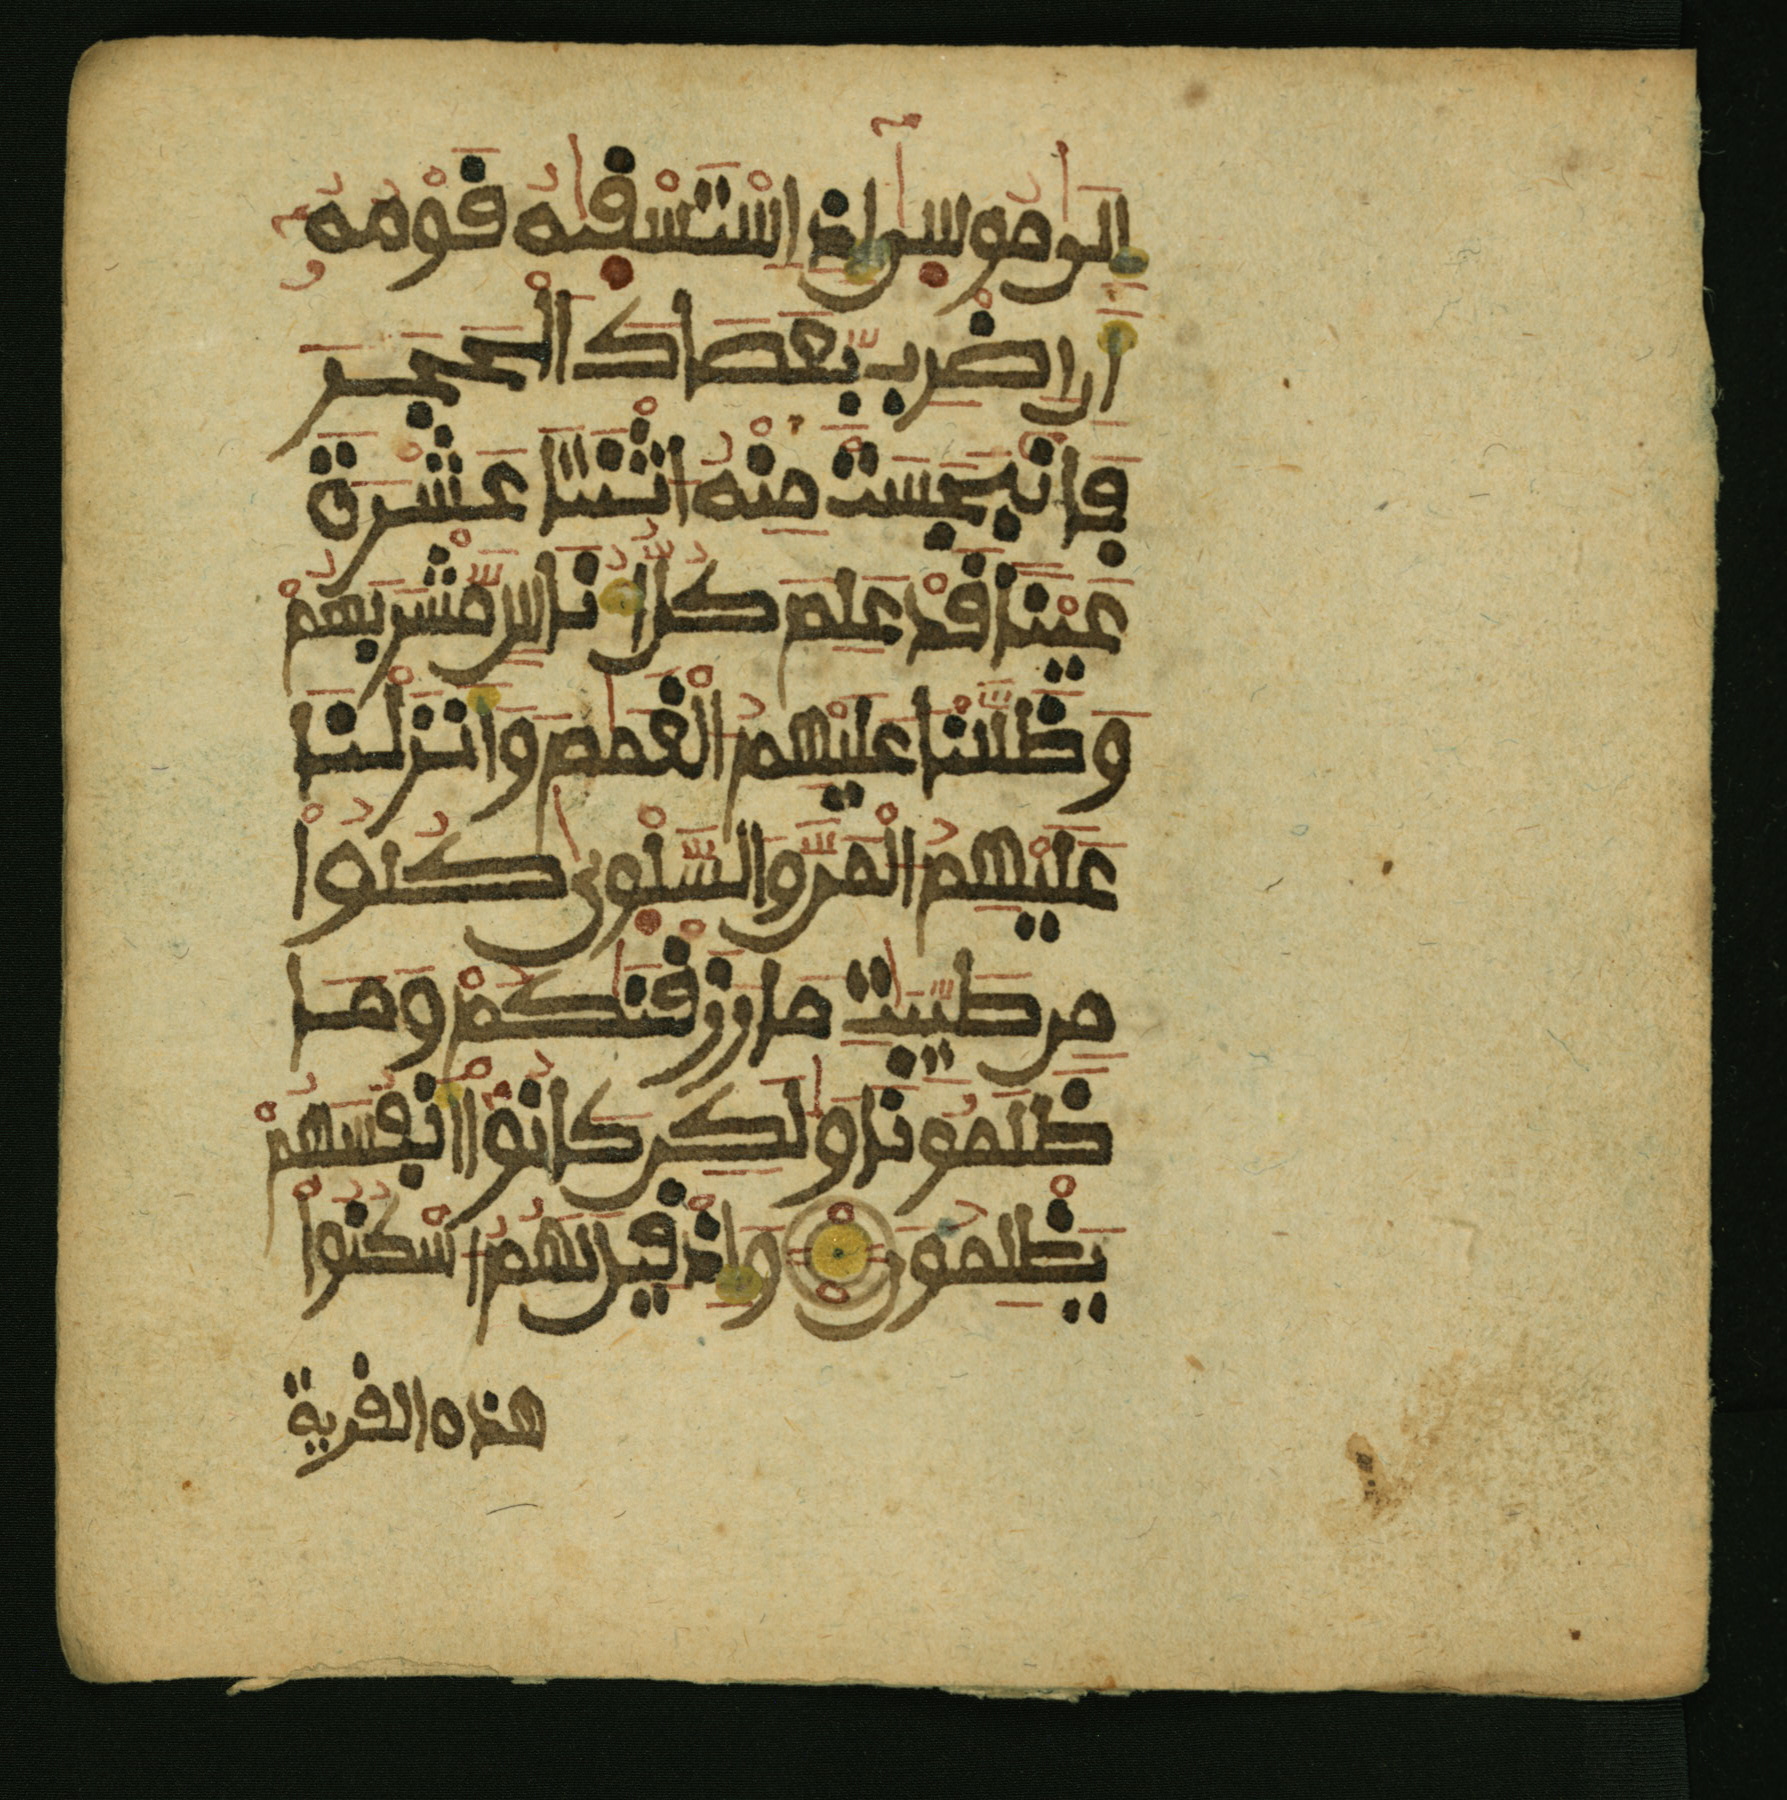 إِلَىٰ مُوسَىٰ إِذِ اسْتَسْقَىٰهُ قَوْمُهُ
أَنِ اضْرِب بِّعَصَاكَ الْحَجَرَ
فَانۢبَجَسَتْ مِنْهُ اثْنَتَا عَشْرَةَ
عَيْنًا قَدْ عَلِمَ كُلُّ أُنَاسٍ مَّشْرَبَهُمْ
وَظَلَّلْنَا عَلَيْهِمُ الْغَمَٰمَ وَأَنزَلْنَا
عَلَيْهِمُ الْمَنَّ وَالسَّلْوَىٰ كُلُوا
مِن طَيِّبَٰتِ مَا رَزَقْنَٰكُمْ وَمَا
ظَلَمُونَا وَلَٰكِن كَانُوا أَنفُسَهُمْ
يَظْلِمُونَ وَإِذْ قِيلَ لَهُمُ اسْكُنُوا
هذه القرية